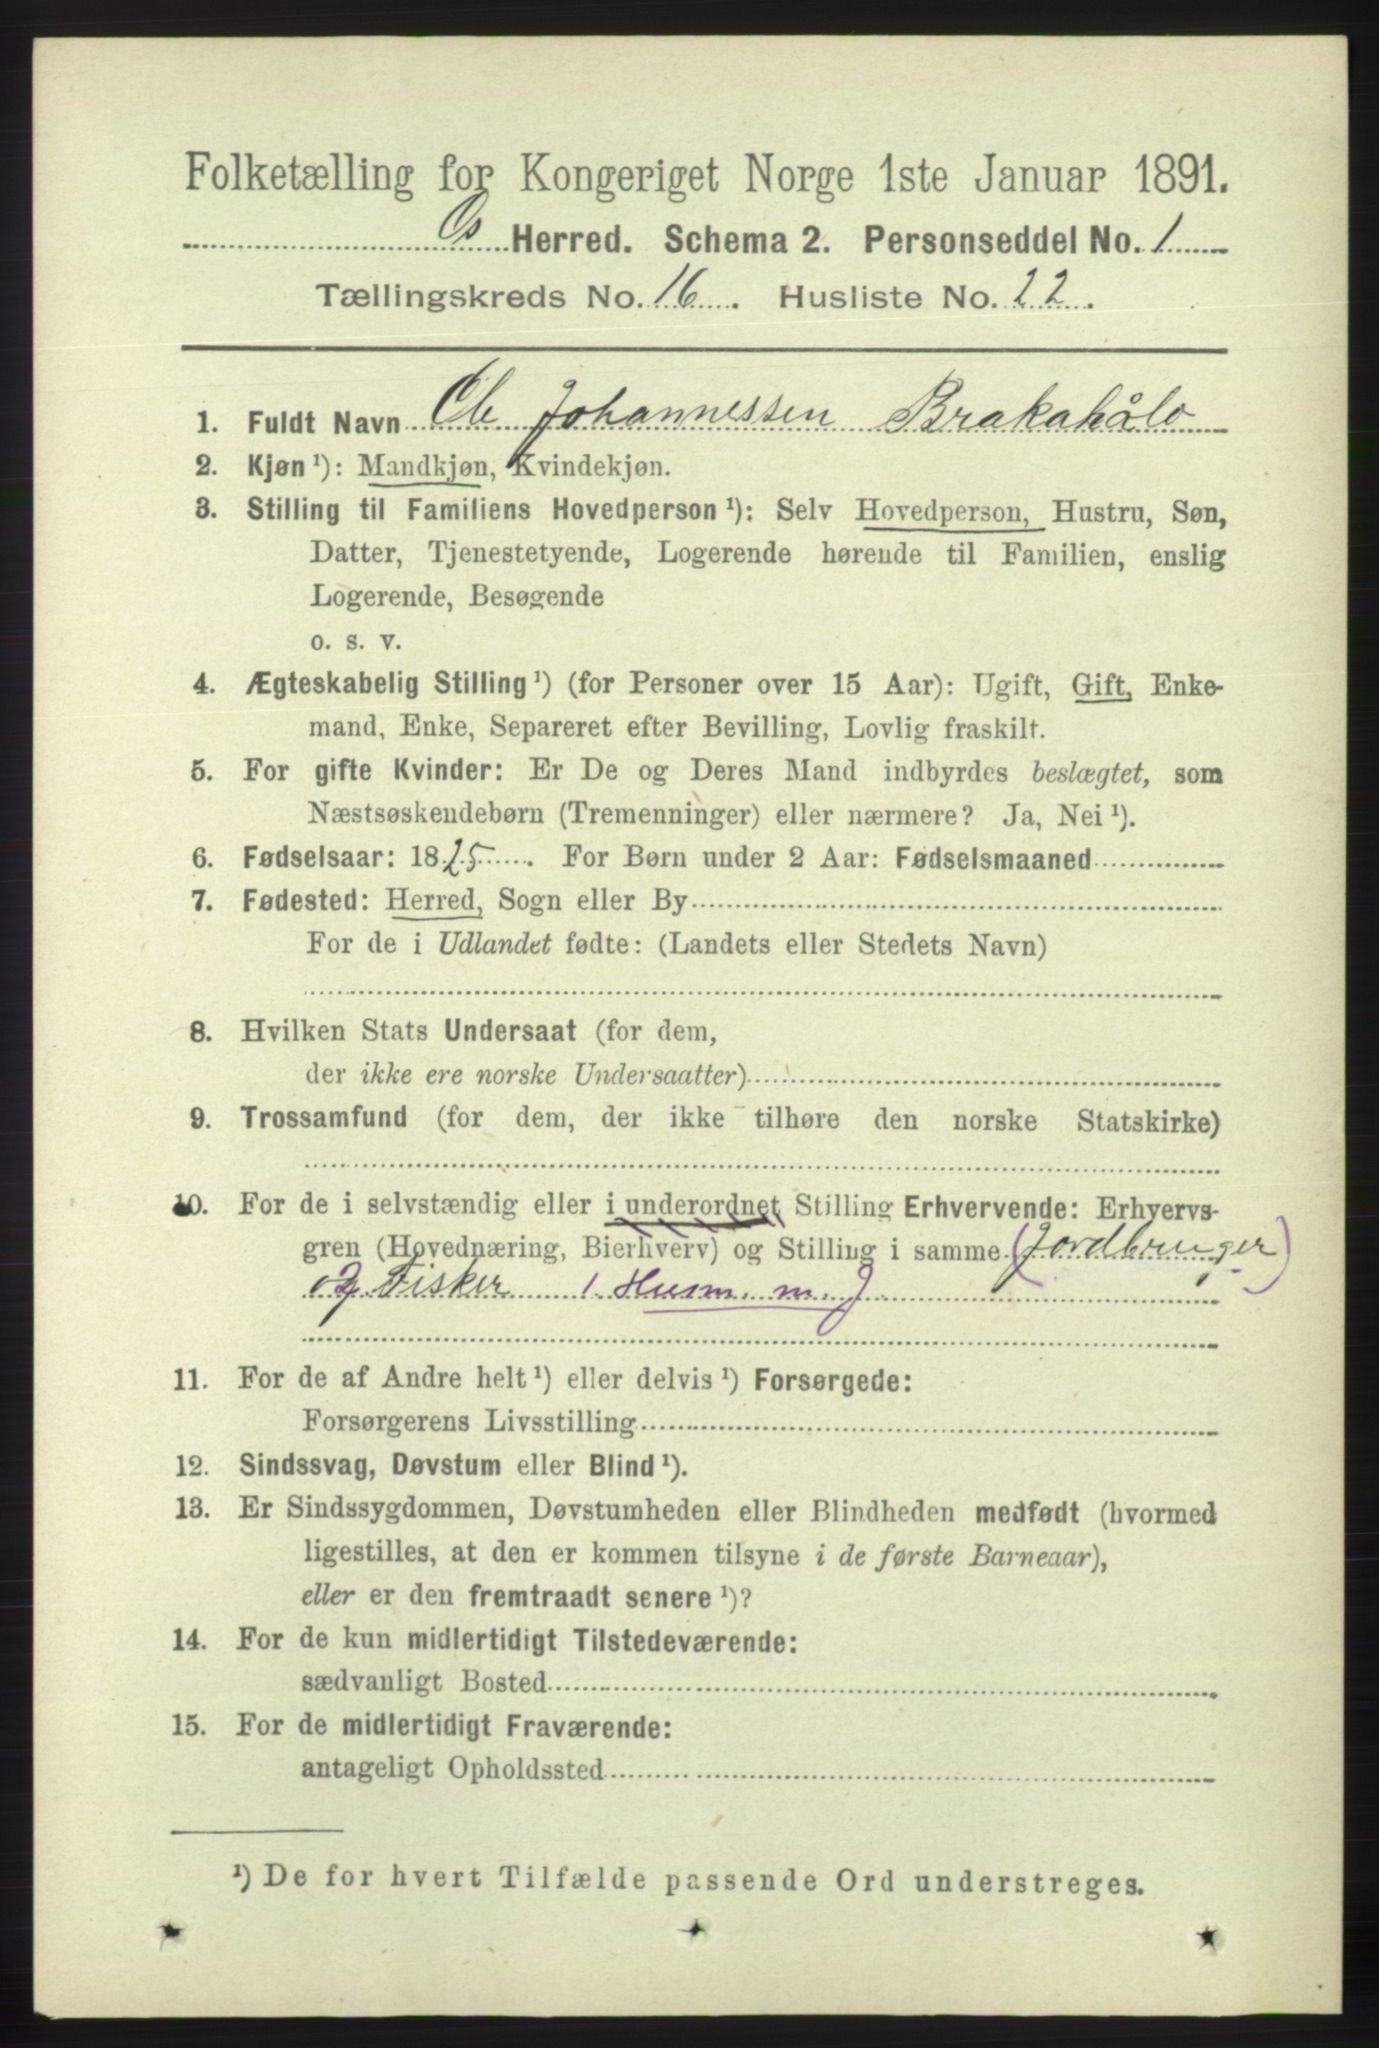 Folketælling for Kongeriget Norge 1ste Januar 1891.
Os Herred. Schema 2. Personseddel No. 1
Tællingskreds No. 16. Husliste No. 22.
1. Fuldt Navn Ole Johannessen Brakahålo
2. Kjøn ¹): Mandkjøn, Kvindekjøn.
3. Stilling til Familiens Hovedperson ¹): Selv Hovedperson, Hustru, Søn,
Datter, Tjenestetyende, Logerende hørende til Familien, enslig
Logerende, Besøgende
o. s. v.
4. Ægteskabelig Stilling ¹) (for Personer over 15 Aar): Ugift, Gift, Enke-
mand, Enke, Separeret efter Bevilling, Lovlig fraskilt.
5. For gifte Kvinder: Er De og Deres Mand indbyrdes beslægtet, som
Næstsøskendebørn (Tremenninger) eller nærmere? Ja, Nei ¹).
6. Fødselsaar: 1825. For Børn under 2 Aar: Fødselsmaaned
7. Fødested: Herred, Sogn eller By
For de i Udlandet fødte: (Landets eller Stedets Navn)
8. Hvilken Stats Undersaat (for dem,
der ikke ere norske Undersaatter)
9. Trossamfund (for dem, der ikke tilhøre den norske Statskirke)
10. For de i selvstændig eller i underordnet Stilling Erhvervende: Erhvervs-
gren (Hovednæring, Bierhverv) og Stilling i samme (Jordbruger)
og Fisker 1. Husm. m. J
11. For de af Andre helt ¹) eller delvis ¹) Forsørgede:
Forsørgerens Livsstilling
12. Sindssvag, Døvstum eller Blind ¹).
13. Er Sindssygdommen, Døvstumheden eller Blindheden medfødt (hvormed
ligestilles, at den er kommen tilsyne i de første Barneaar),
eller er den fremtraadt senere ¹)?
14. For de kun midlertidigt Tilstedeværende:
sædvanligt Bosted
15. For de midlertidigt Fraværende:
antageligt Opholdssted
¹) De for hvert Tilfælde passende Ord understreges.